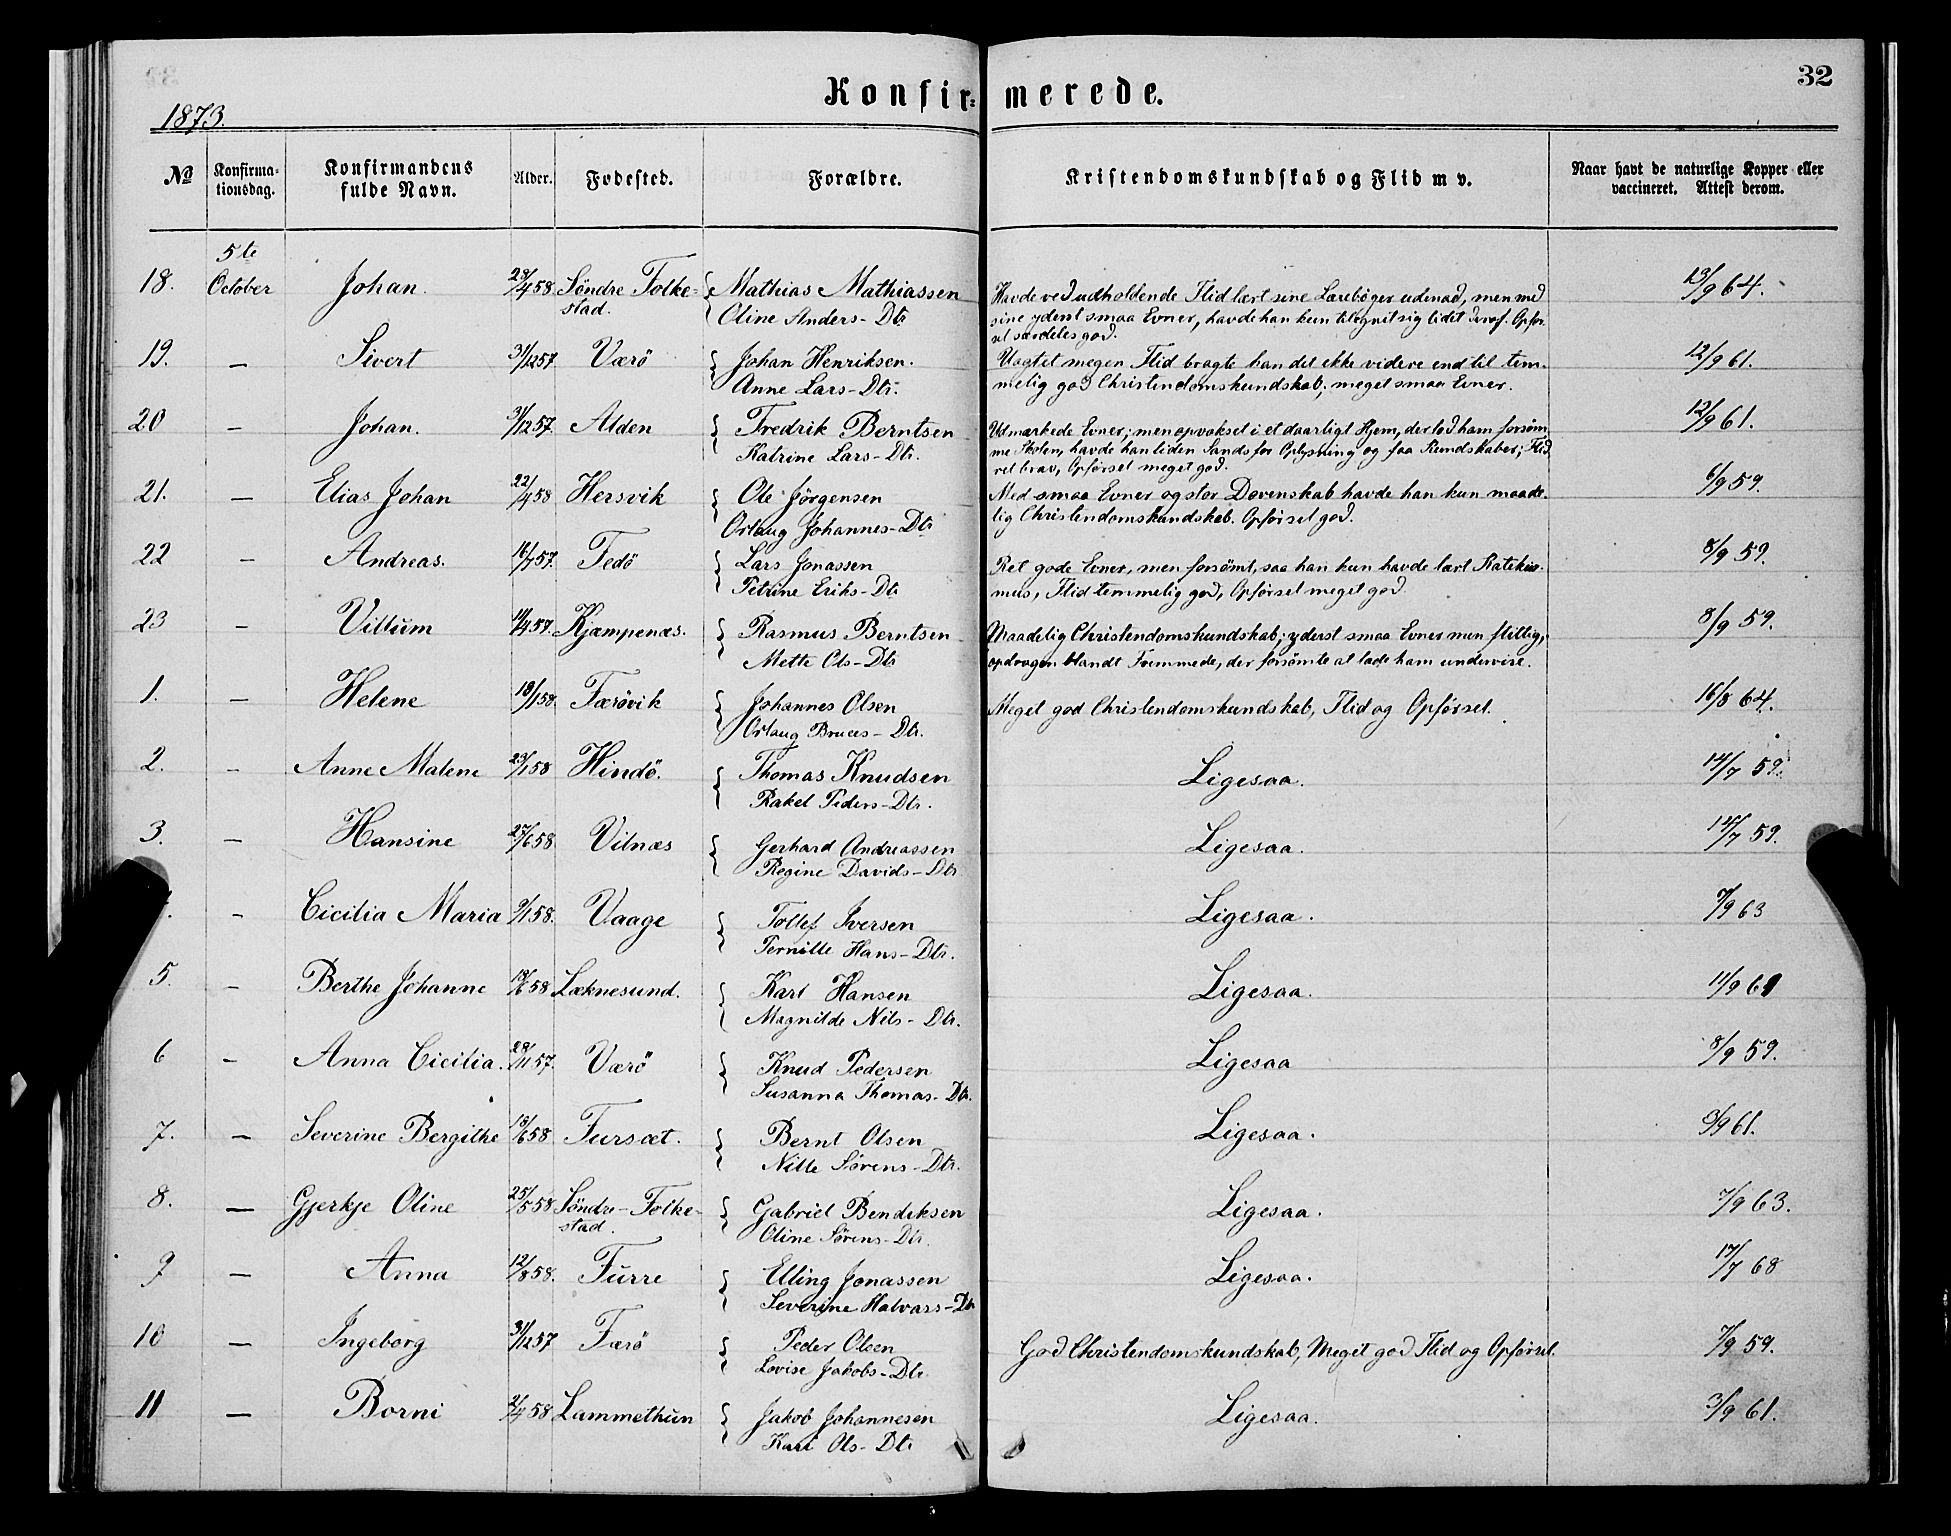 32
Konfir= merede.
1873.
№ Konfirma-tionsdag. Konfirmandens fulde Navn. Alder. Fødested. Forældre. Kristendomskundskab og Flid m v. Naar havt de naturlige Kopper eller vaccineret. Attest derom.
5te
18. October Johan. 28/4 58. Söndre Folke= { Mathias Mathiassen Havde ved udholdende Flid lært sine Lærebøger udenad, men med 13/9 64.
stad. Oline Anders-Dtr sine yderst smaa Evner, havde han kun tilegnet sig lidet deraf. Opför-
sel særdeles god.
19. — Sivert 31/12 57 Værö { Johan Henriksen. Uagtet megen Flid bragte han det ikke videre end til tem- 12/9 61.
Anne Lars-Dtr. melig god Christendomskundskab; meget smaa Evner.
20 — Johan. 31/12 57. Alden { Fredrik Berntsen Udmærkede Evner; men opvokset i et daarligt Hjem, der lod ham forsøm- 12/9 61.
Katrine Lars-Dtr. me Skolen, havde han liden Sands for Oplysning og faa Kundskaber; Flid
ret brav, Opførsel meget god.
21. — Elias Johan 22/4 58 Hersvik { Ole Jörgensen Med smaa Evner og stor Dovenskab havde han kun maade- 6/9 59.
Orlaug Johannes-Dtr lig Christendomskundskab. Opførsel god.
22 — Andreas. 16/7 57. Fedö { Lars Jonassen Ret gode Evner, men forsømt, saa han kun havde lært Katekis- 8/9 59.
Petrine Eriks-Dtr mus, Flid temmelig god, Opførsel meget god.
23 — Villum 11/4 57. Kjæmpenæs. { Rasmus Berntsen Maadelig Christendomskundskab; yderst smaa Evner men flittig; 8/9 59.
Mette Ols-Dtr opdragen blandt Fremmede, der forsømte at lade ham undervise.
1. — Helene 18/1 58. Færövik { Johannes Olsen Meget god Christendomskundskab, Flid og Opførsel. 16/8 64.
Orlaug Bruces-Dtr.
2. — Anne Malene 23/1 58 Hindö. { Thomas Knudsen Ligesaa. 14/7 59.
Rakel Peders-Dtr.
3. — Hansine 27/6 58. Vilnæs { Gerhard Andreassen Ligesaa. 14/7 59.
Regine Davids-Dtr
— Cicilia Maria 9/1 58. Vaage { Tollef Iversen Ligesaa. 7/9 63
Pernille Hans-Dtr.
5. — Berthe Johanne 18/6 58 Læknesund. { Karl Hansen Ligesaa. 11/9 61
Magnilde Nils-Dtr.
6 — Anna Cicilia. 28/11 57. Værö { Knud Pedersen Ligesaa 8/9 59.
Susanna Thomas-Dtr.
7. — Severine Bergithe 18/6 58 Fursæt. { Bernt Olsen Ligesaa. 3/9 61.
Nille Sörens-Dtr.
8. — Gjerkje Oline 25/5 58 Söndre-Folke- { Gabriel Bendiksen Ligesaa. 7/9 63.
stad. Oline Sörens-Dtr.
9 — Anna 12/8 58. Furre { Elling Jonassen Ligesaa. 17/7 68
Severine Halvars-Dtr
10 — Ingeborg 31/12 57 Færö { Peder Olsen God Christendomskundskab, Meget god Flid og Opførsel. 7/9 59.
Lovise Jakobs-Dtr.
11 — Borni 2/4 58 Lammethun { Jakob Johannesen Ligesaa. 3/9 61.
Kari Ols-Dtr